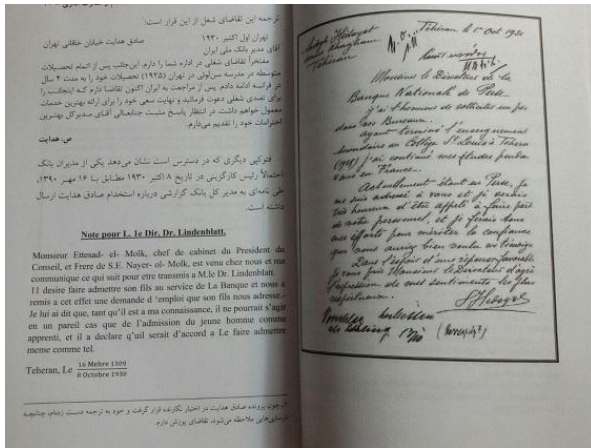 ترجمه این تقاضای شغل از این قرار است:
تهران اول اکتبر ۱۹۳۰ صادق هدایت خیابان خاقانی تهران
آقای مدیر بانک ملی ایران
مفتخراً تقاضای شغل در اداره شما را دارم. این‌جانب پس از اتمام تحصیلات
متوسطه در مدرسه سن‌لوئی در تهران (۱۹۲۵) تحصیلات خود را به مدت ۴ سال
در فرانسه ادامه دادم. پس از مراجعت به ایران اکنون تقاضا دارم که اینجانب را
برای تصدی شغلی دعوت فرمائید و نهایت سعی خود را برای ارائه بهترین خدمات
معمول خواهم داشت. در انتظار پاسخ مثبت جنابعالی آقای مدیرکل بهترین
احترامات خود را تقدیم می‌دارم.
ص. هدایت
فتوکپی دیگری که در دسترس است نشان می‌دهد یکی از مدیران بانک
احتمالاً رئیس کارگزینی در تاریخ ۸ اکتبر ۱۹۳۰ مطابق با ۱۶ مهر
طی نامه‌ای به مدیر کل بانک گزارشی درباره استخدام صادق هدایت ارسال
داشته است.
Note pour L. le Dir. Dr. Lindenblatt.
Monsieur Ettesad- el- Molk, chef de cabinet du President du
Conseil, et Frere de S.E. Nayer- ol- Molk, est venu chez nous et ma
communique ce qui suit pour etre transmis a M.le Dr. Lindenblatt.
11 desire faire admettre son fils au service de La Banque et nous a
remis a cet effet une demande d 'emploi que son fils nous adresse.-
Je lui ai dit que, tant qu'il est a ma connaissance, il ne pourrait s'agir
en un pareil cas que de l'admission du jeune homme comme
apprenti, et il a declare qu'il serait d'accord a Le faire admettre
meme comme tel.
Teheran, Le 16 Mehre 1309
8 Octobre 1930
۱ـ چون پرونده صادق هدایت در اختیار نگارنده قرار گرفت و خود به ترجمه دست زده‌ام، چنانچه
نارسایی‌هایی ملاحظه می‌شود، تقاضای پوزش دارم.
Téhéran le 1er Oct 1930
Sadegh Hedayat
Téhéran
Monsieur le Directeur de la
Banque Nationale de Perse
j'ai l'honneur de solliciter un
dans vos Bureaux.
Ayant terminé l'enseignement
secondaire au Collège St Louis à Téhéran
(1925) j'ai continué mes études pendant
ans en France.
Actuellement étant en Perse, je
me suis adressé à vous et je serais
très heureux d'être appelé à faire partie
de votre personnel, et je ferais tous
mes efforts pour mériter la confiance
que vous auriez bien voulu me témoigner.
Dans l'espoir d'une réponse favorable
je vous prie Monsieur le Directeur d'agréer
l'expression de mes sentiments les plus
respectueux.
S Hedayat